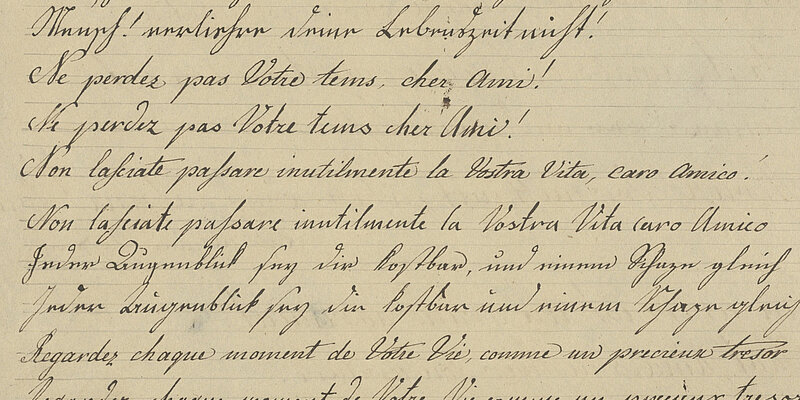 Mensch! verliehre deine Lebenszeit nicht!
Ne perdez pas Votre tems, cher Ami!
Ne perdez pas Votre tems cher Ami!
Non lasciate paſsare inutilmente la Vostra Vita, caro Amico!
Non laſciate paſsare inutilmente la Vostra Vita caro Amico
Jeder Augenblick sey dir kostbar, und einem Schaze gleich
Jeder Augenblick sey dir kostbar und einem Schaze gleich
Regardez chaque moment de Votre Vie, comme un precieux tresor
Regardez chaque moment de Votre Vie comme un precieux tresor